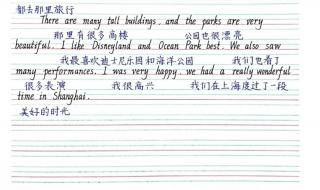 都去那里旅行
There are many tall buildings, and the parks are very
那里有很多高楼 公园也很漂亮
beautiful. I like Disneyland and Ocean Park best. We also saw
我最喜欢迪士尼乐园和海洋公园 我们也看了
many performances. I was very happy. we had a really wonderful
很多表演 我很高兴 我们在上海度过了一段
time in Shanghai.
美好的时光